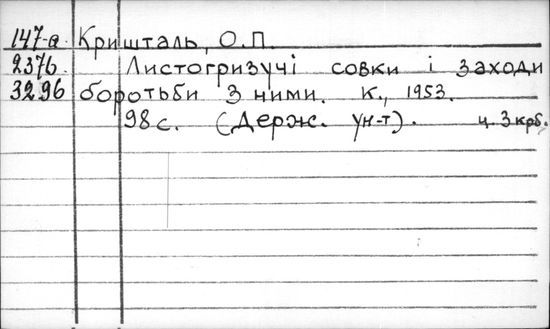 147-а Кришталь, О.П.
2376. Листогризучі совки і заходи
3296 боротьби з ними. К., 1953.
98 с. (Держ. ун-т). ц. 3 крб.